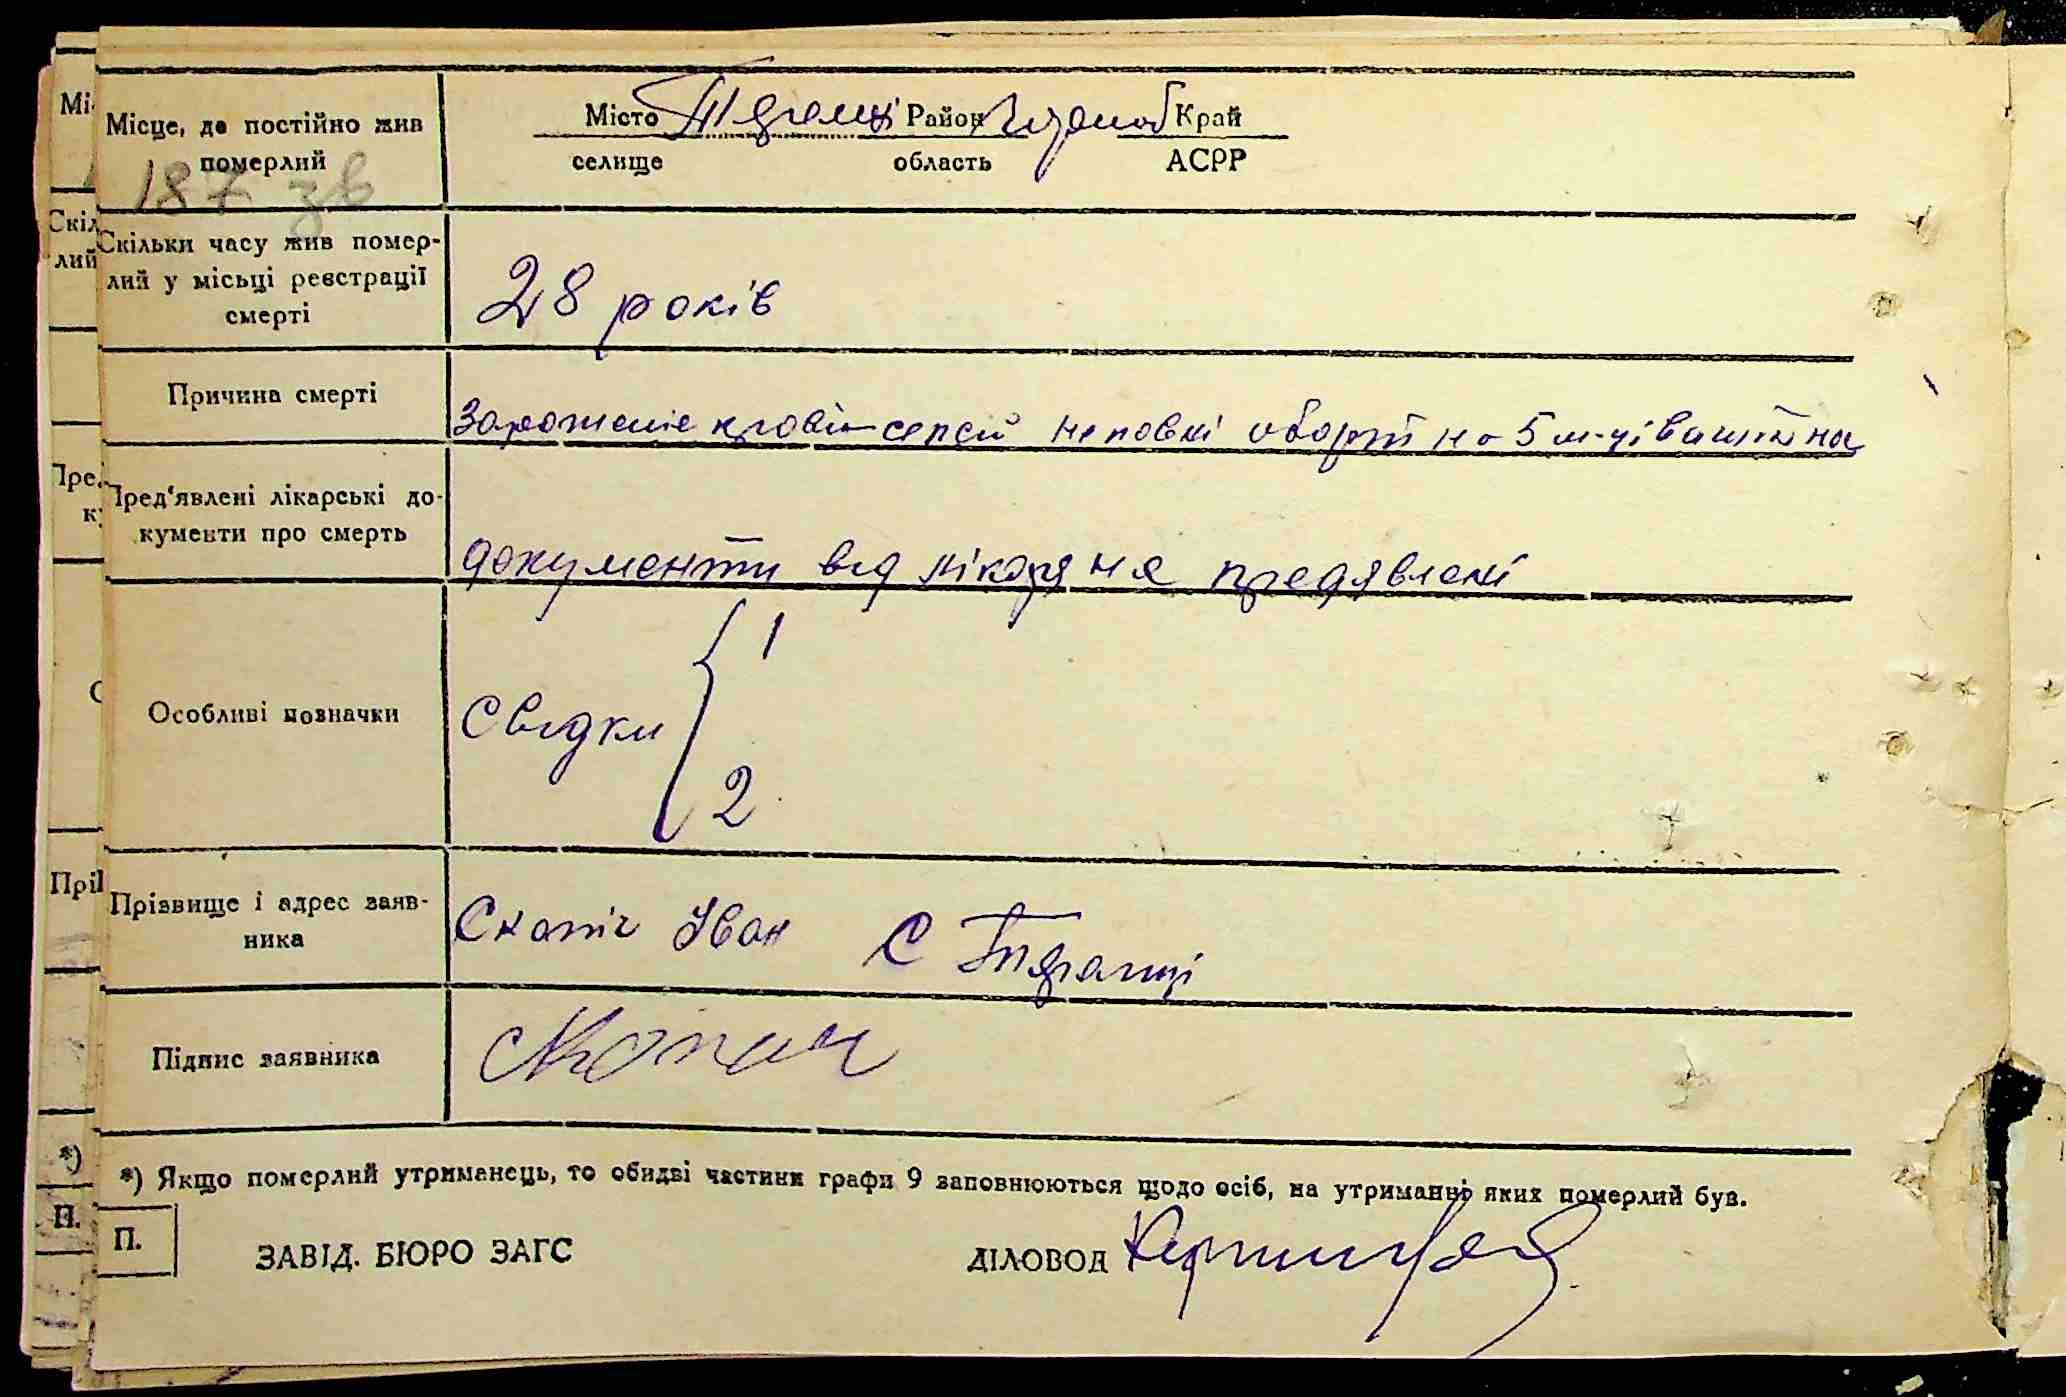 Місце, де постійно жив
померлий
187 зв
Місто Район Край
селище область АСРР
Скільки часу жив помер-
лий у місьці реєстрації
смерті
28 років
Причина смерті
Зараженіе крові сепсій неповні аборт на 5 м-ці
Пред'явлені лікарські до-
кументи про смерть
документи від лікаря не предявлені
Особливі позначки
Свідки { 1
2
Прізвище і адрес заяв-
ника
Іван С
Підпис заявника
*) Якщо померлий утриманець, то обидві частини графи 9 заповнюються щодо осіб, на утриманні яких померлий був.
П.
ЗАВІД. БЮРО ЗАГС ДІЛОВОД